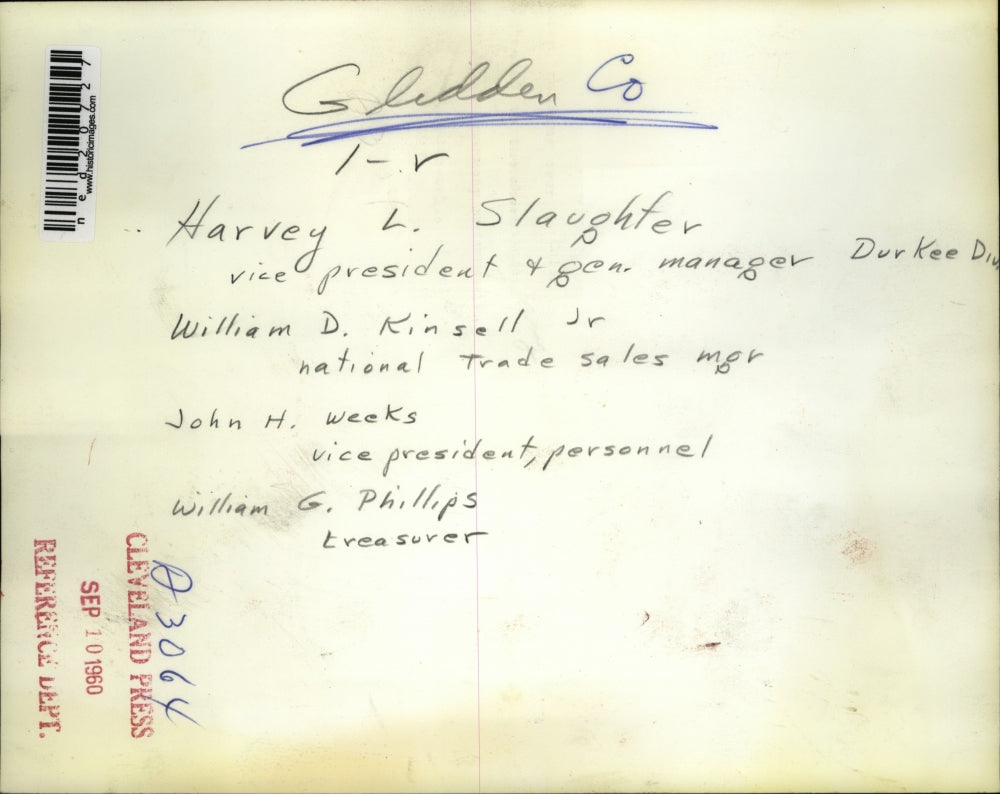 Glidden Co
l-r
Harvey L. Slaughter
vice president & gen. manager Durkee Div
William D. Kinsell Jr
national Trade sales mgr
John H. Weeks
vice president, personnel
William G. Phillips
treasurer
A 3064
CLEVELAND PRESS
SEP 10 1960
REFERENCE DEPT.
ned20727
www.historicimages.com